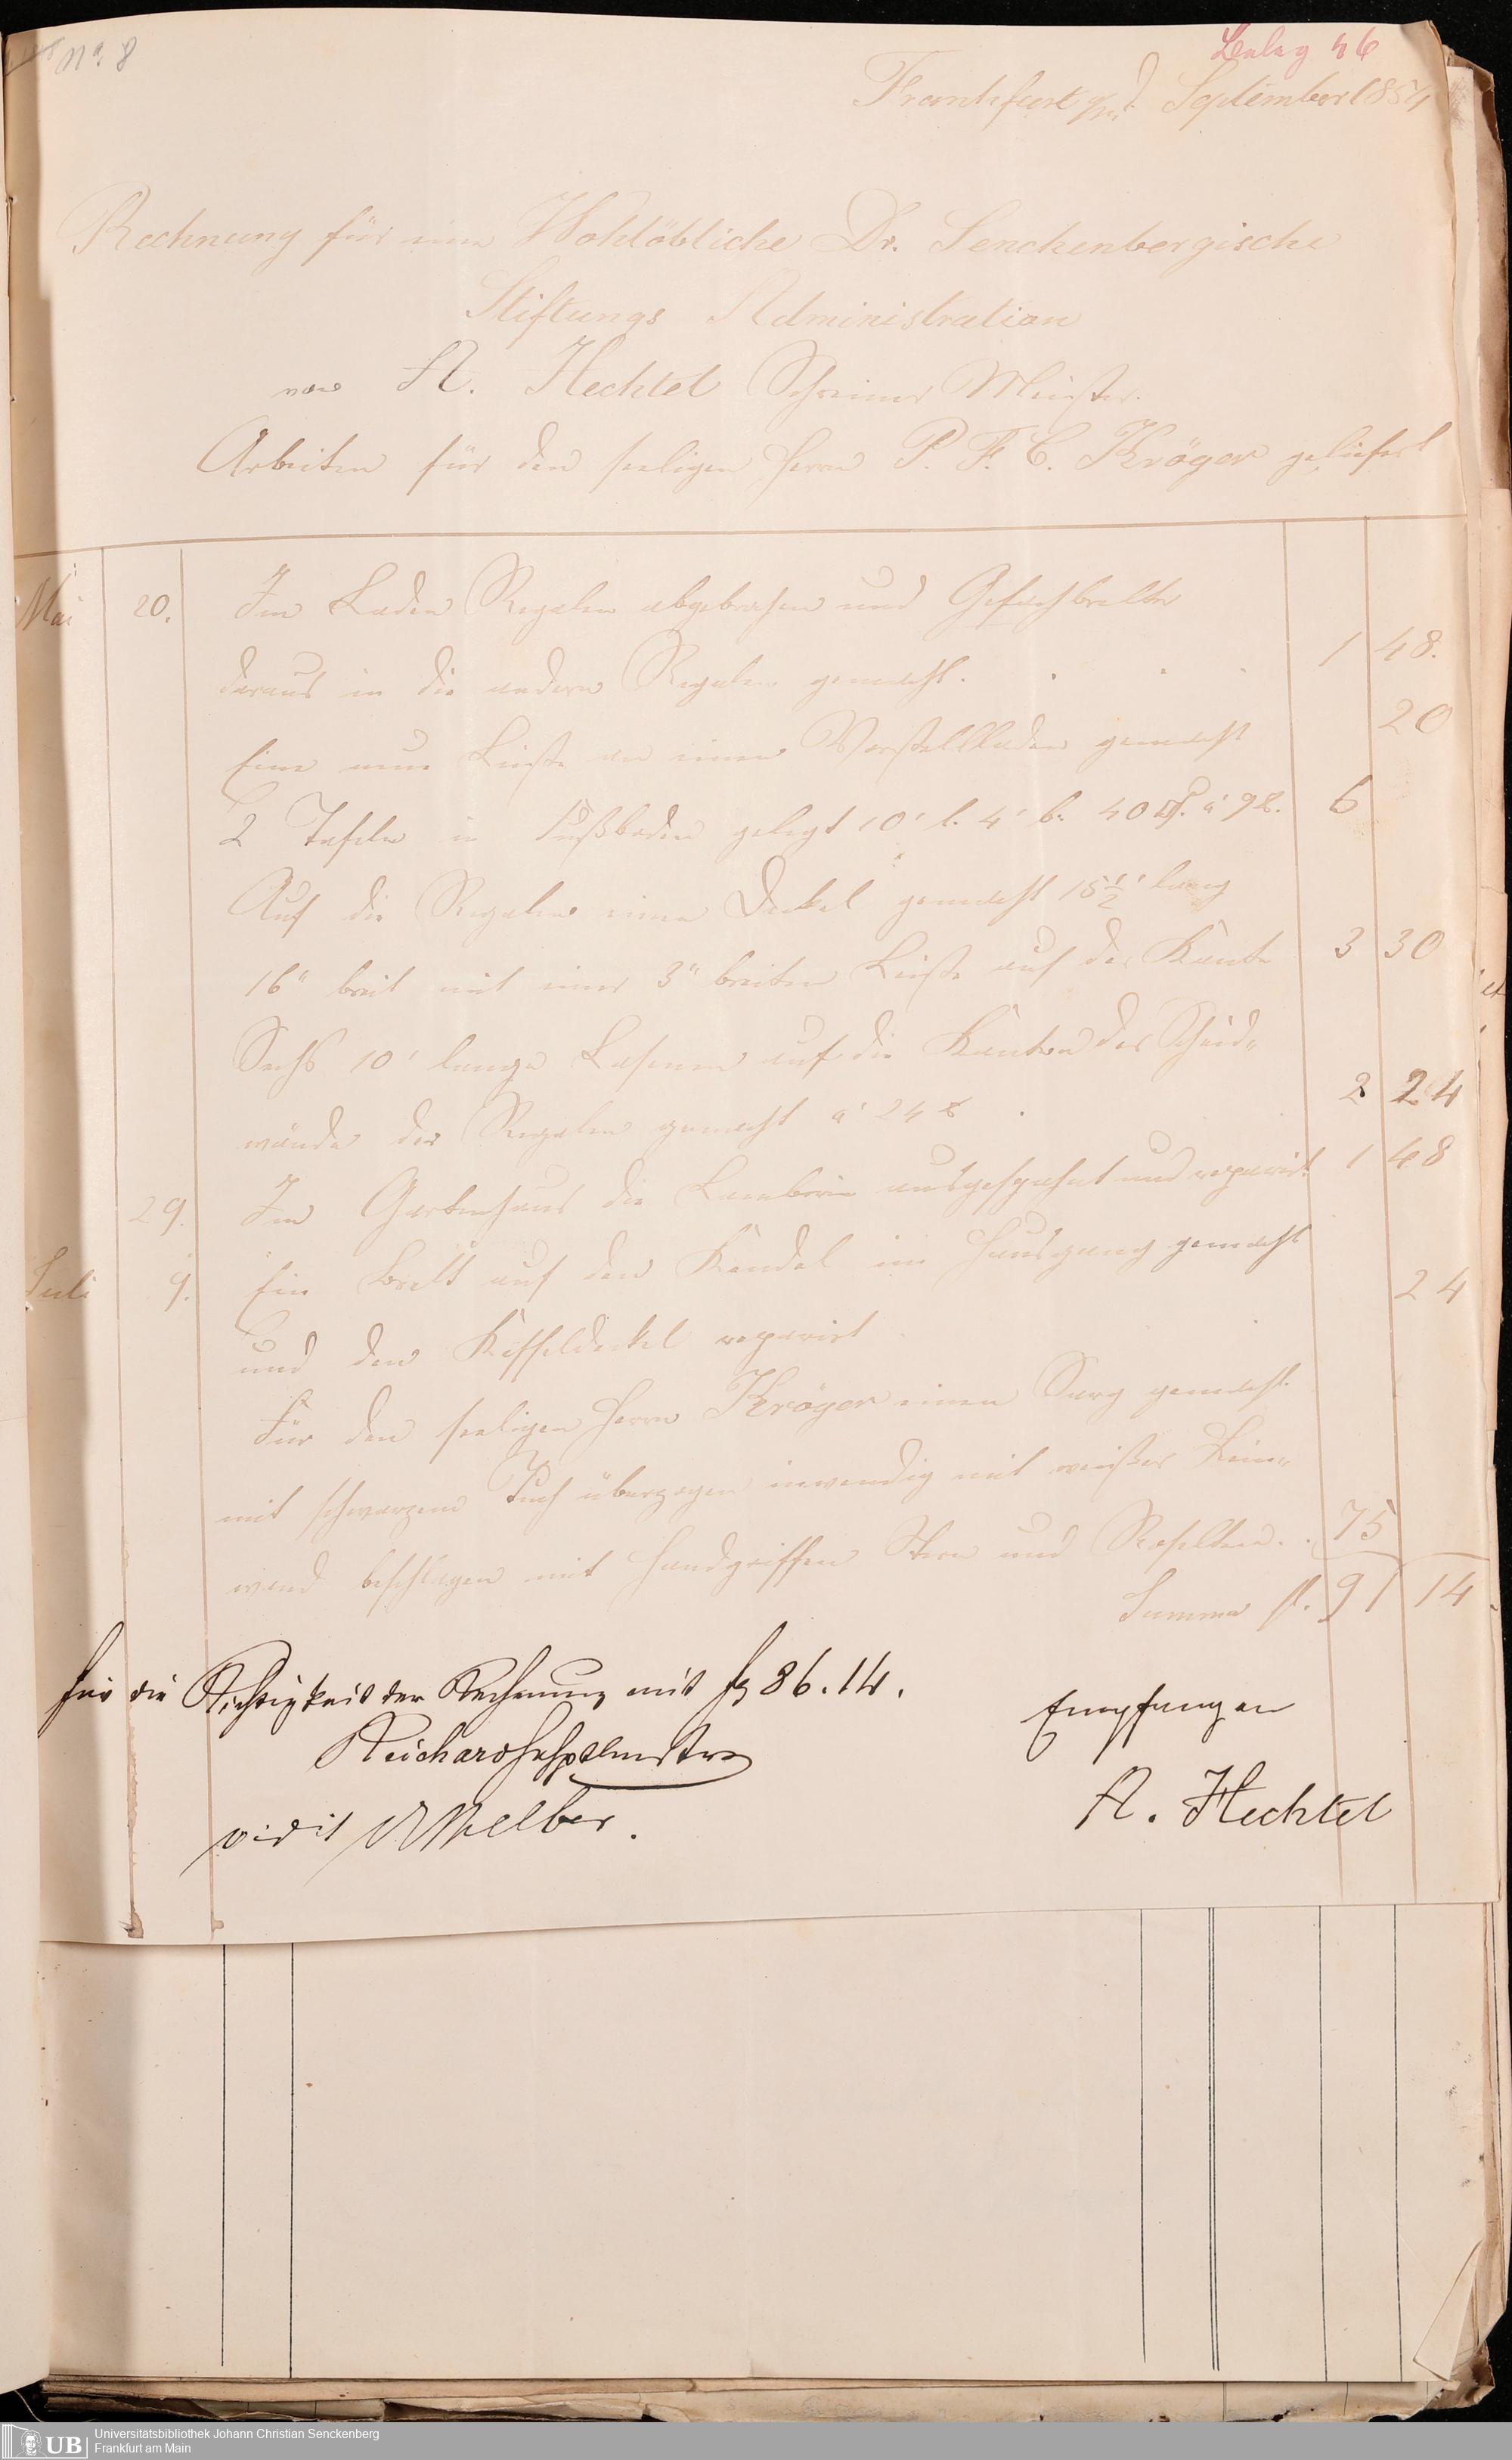 No. 8
Beleg 46
Frankfurt a/m d. September 1854
Rechnung für eine Wohllöbliche Dr. Senckenbergische
Stiftungs Administration
von A. Hechtel Schreiner Meister.
Arbeiten für den seeligen Herrn P. F. C. Kröger geliefert
Mai 20. Im Laden Regalen abgebrochen und Gefachbretter
daraus in die andern Regalen gemacht. . . . 1 48.
Eine neue Leiste an einen Vorstellladen gemacht 20
2 Tafeln in Fußboden gelegt 10' l. 4' b. 40 □'. a' 9 x. 6
Auf die Regalen einen Deckel gemacht 15½' lang
16" breit mit einer 3" breiten Leiste auf der Kante 3 30
Sechs 10' lange Lesenen auf die Kanten der Scheid-
wände der Regalen gemacht a' 24 x . 2 24
29. Im Gartenhaus die Lamberie ausgespahnt und reparirt 1 48
Juli 9. Ein Brett auf den Kandel im Hausgang gemacht
und den Kesseldeckel reparirt . . 24
Für den seeligen Herrn Kröger einen Sarg gemacht
mit schwarzem Tuch überzogen inwendig mit weißer Lein-
wand beschlagen mit Handgriffen Stern und Rosetten. . 75
Summa fl. 91 14
Für die Richtigkeit der Rechnung mit fl 86.14.
Empfangen
A. Hechtel
vidit Melber.
Universitätsbibliothek Johann Christian Senckenberg
Frankfurt am Main
UB